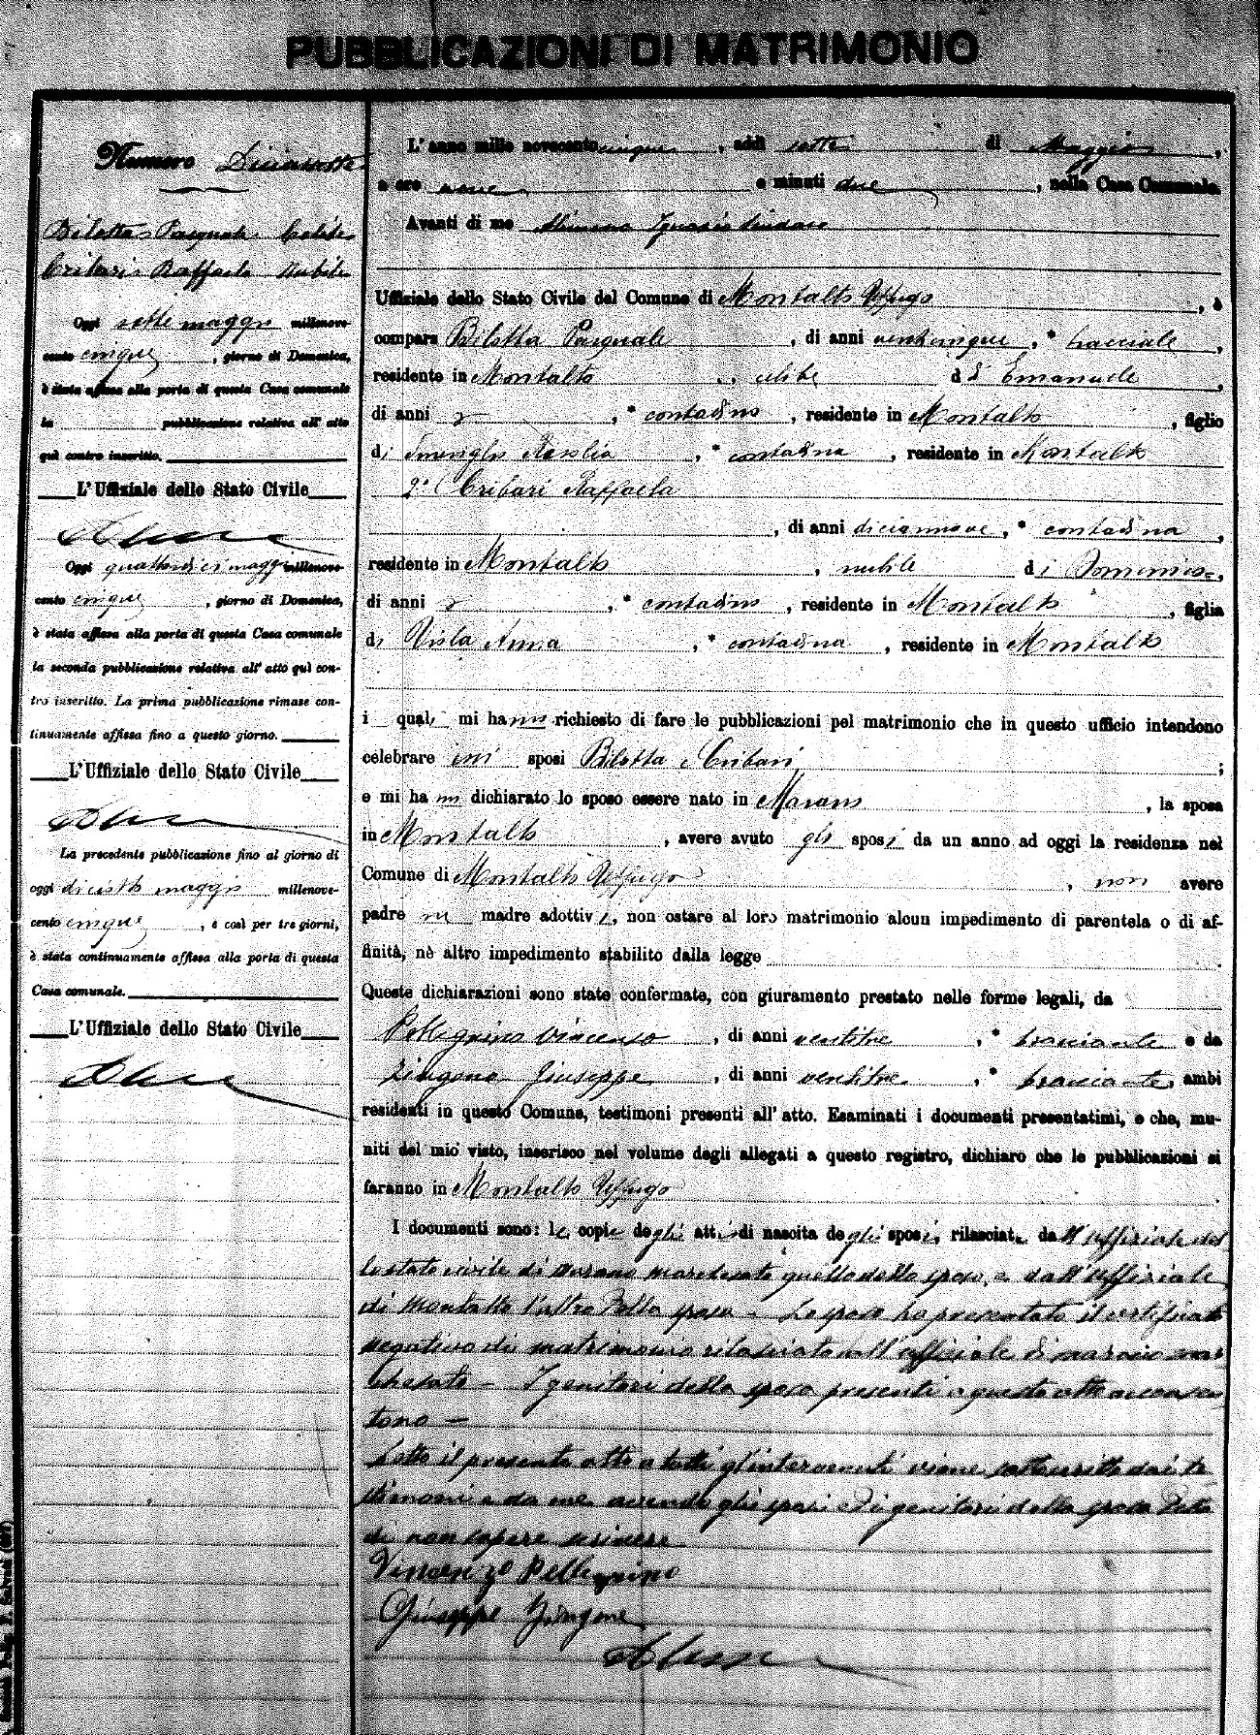 PUBBLICAZIONI DI MATRIMONIO
Numero Diciassette
Bilotta Pasquale Celibe
Cribari Raffaela Nubile
Oggi sette maggio millenove-
cento cinque, giorno di Domenica,
è stata affissa alla porta di questa Casa comunale
la pubblicazione relativa all' atto
quì contro inscritto.
L'Uffiziale dello Stato Civile
Oggi quattordici maggio millenove-
cento cinque, giorno di Domenica,
è stata affissa alla porta di questa Casa comunale
la seconda pubblicazione relativa all' atto quì con-
tro inscritto. La prima pubblicazione rimase con-
tinuamente affissa fino a questo giorno.
L'Uffiziale dello Stato Civile
La precedente pubblicazione fino al giorno di
oggi maggio millenove-
cento cinque, e così per tre giorni,
è stata continuamente affissa alla porta di questa
Casa comunale.
L'Uffiziale dello Stato Civile
L'anno mille novecento cinque, addì sette di Maggio,
a ore nove e minuti due, nella Casa Comunale.
Avanti di me Ignazio Sindaco
Uffiziale dello Stato Civile del Comune di Montalto Uffugo, è
compars Bilotta Pasquale, di anni venticinque, *
residente in Montalto, celibe di Emanuele,
di anni, * contadino, residente in Montalto, figlio
di Rosalia, * contadina, residente in Montalto
2° Cribari Raffaela
, di anni diciannove, * contadina,
residente in Montalto, nubile di Domenico,
di anni, * contadino, residente in Montalto, figlia
di Vista Anna * contadina, residente in Montalto
i quali mi hanno richiesto di fare le pubblicazioni pel matrimonio che in questo ufficio intendono
celebrare essi sposi Bilotta e Cribari;
e mi hanno dichiarato lo sposo essere nato in Marano, la sposa
in Montalto, avere avuto gli sposi da un anno ad oggi la residenza nel
Comune di Montalto Uffugo, non avere
padre nè madre adottivi, non ostare al loro matrimonio alcun impedimento di parentela o di af-
finità, nè altro impedimento stabilito dalla legge
Queste dichiarazioni sono state confermate, con giuramento prestato nelle forme legali, da
Pellegrino Vincenzo, di anni ventitre, * bracciante e da
Zingone Giuseppe, di anni ventitre, * bracciante, ambi
residenti in questo Comune, testimoni presenti all' atto. Esaminati i documenti presentatimi, e che, mu-
niti del mio visto, inserisco nel volume degli allegati a questo registro, dichiaro che le pubblicazioni si
faranno in Montalto Uffugo
I documenti sono: le copie degli atti di nascita degli sposi, rilasciate dall'uffiziale del
lo stato civile di Marano Marchesato quella dello sposo, e dall'uffiziale
di Montalto l'altra della sposa - Lo sposo ha presentato il certificato
negativo di matrimonio rilasciato dall'uffiziale di Marano Mar
chesato - I genitori della sposa presenti a questo atto acconsen
tono -
Letto il presente atto a tutti gl'intervenuti viene sottoscritto dai te
stimoni e da me avendo gli sposi ed i genitori della sposa detto
di non sapere scrivere
Vincenzo Pellegrino
Giuseppe Zingone